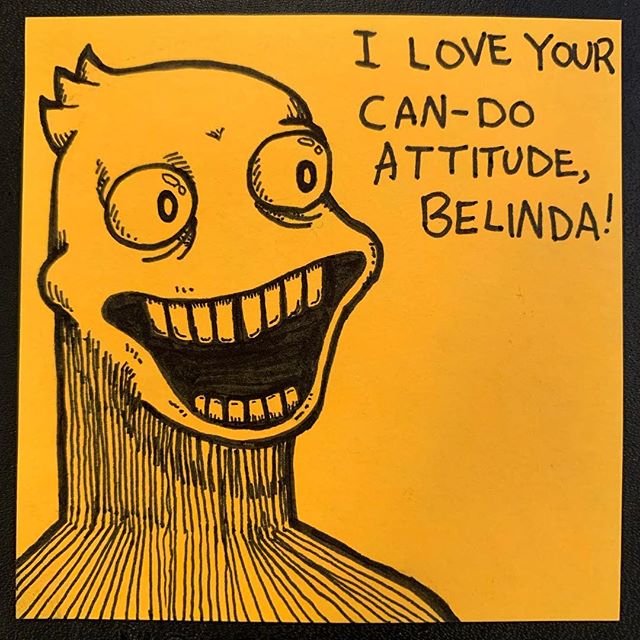 I LOVE YOUR
CAN-DO
ATTITUDE,
BELINDA!